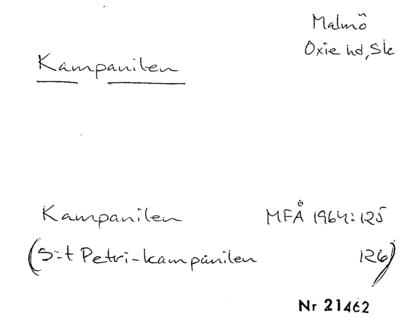 Malmö
Oxie hd, Sk
Kampanilen
Kampanilen MFÅ 1964:125
(S:t Petri-kampanilen 126)
Nr 21462